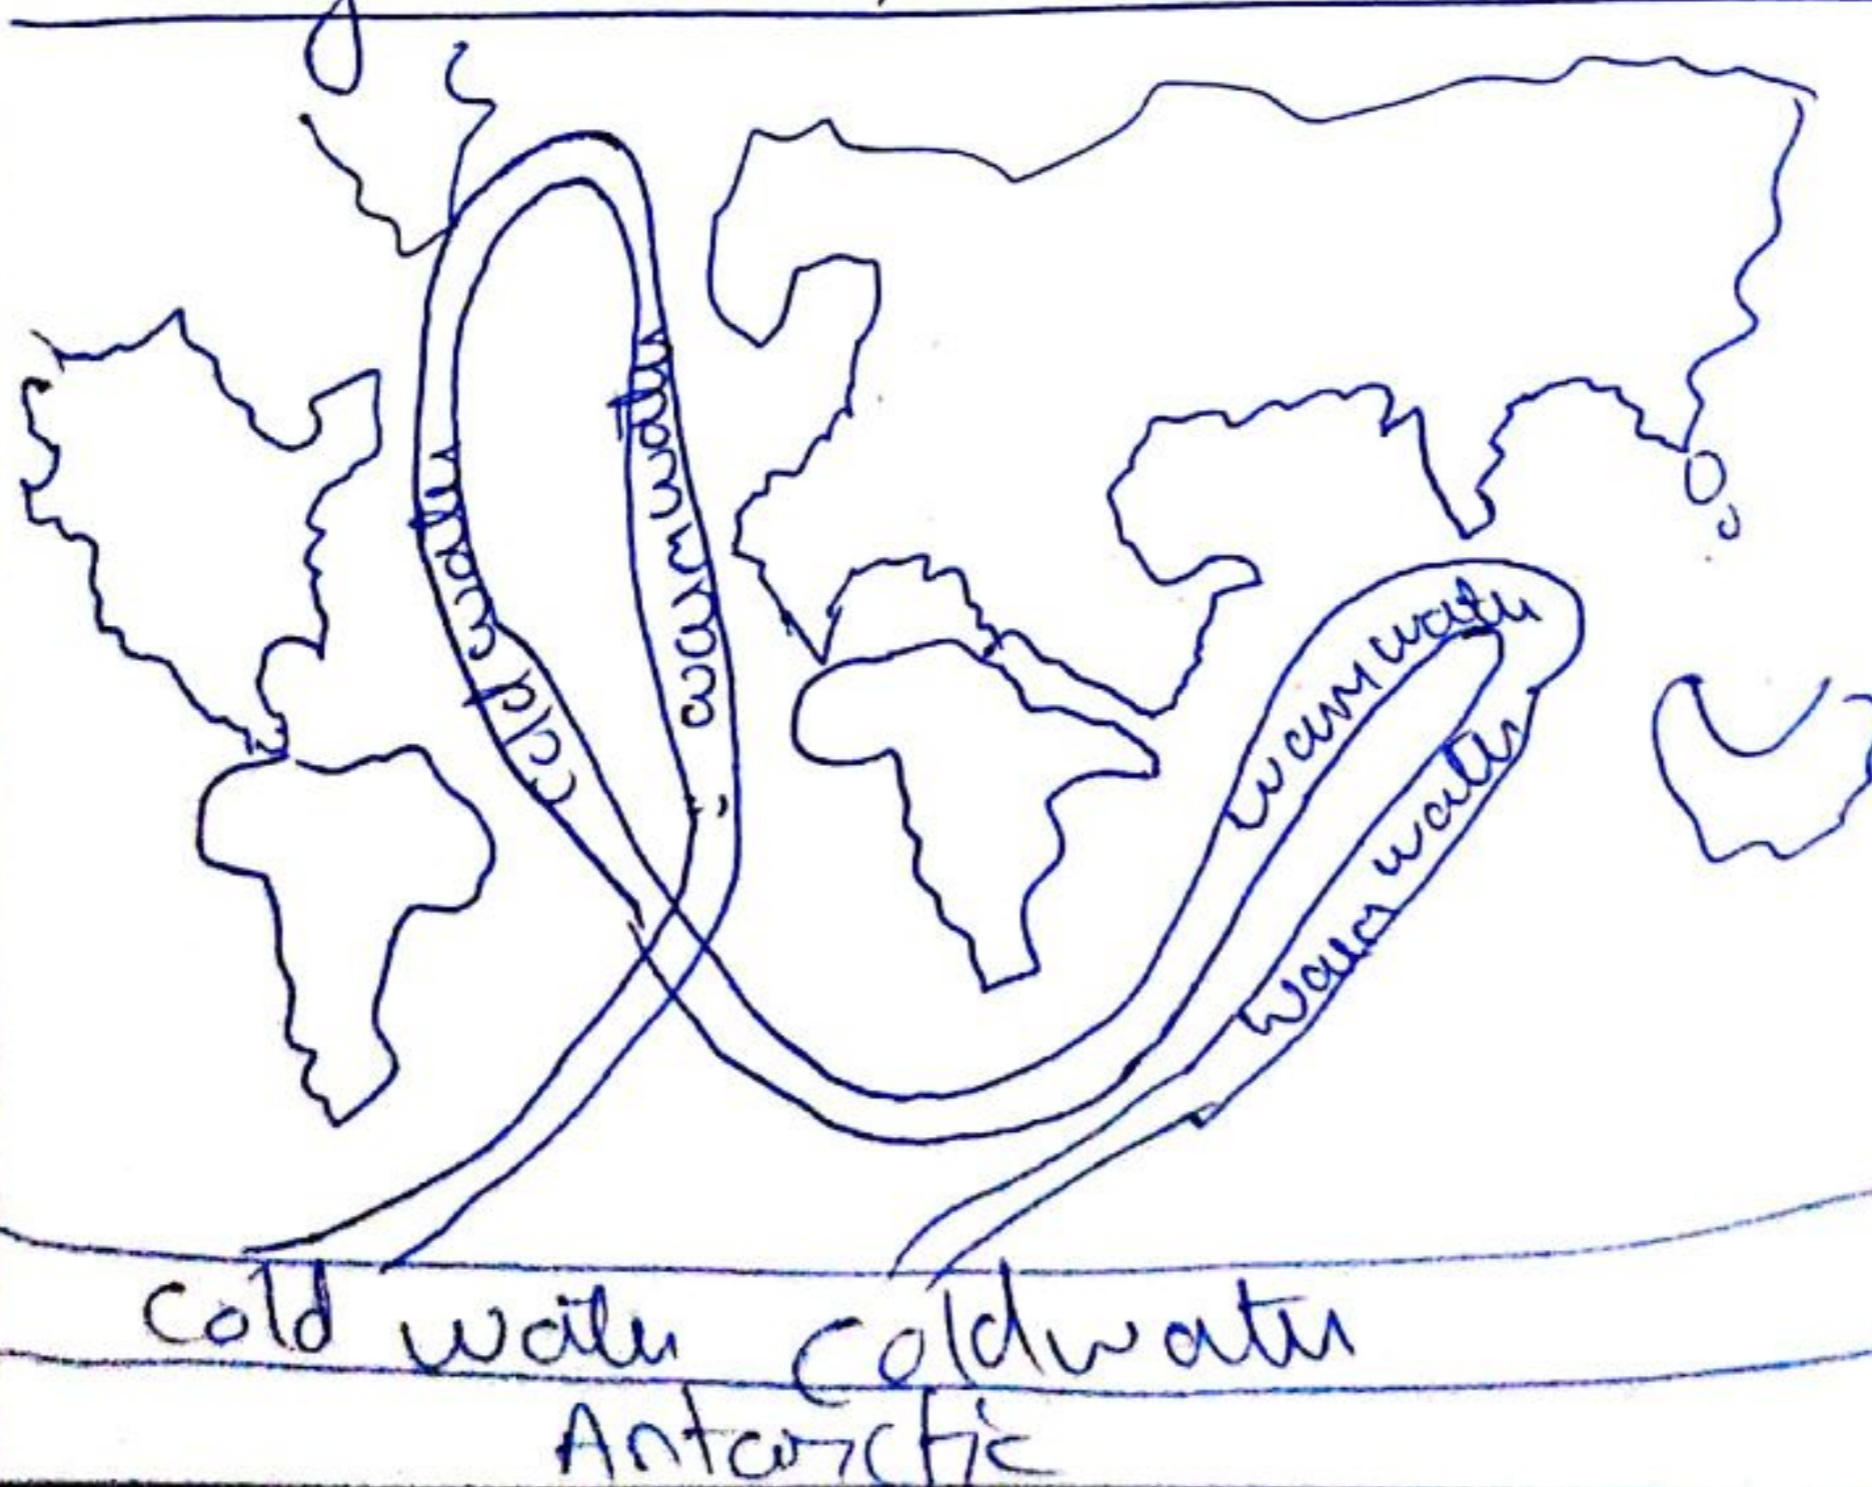 cold water
warm water
warm water
warm water
cold water coldwater
Antarctic